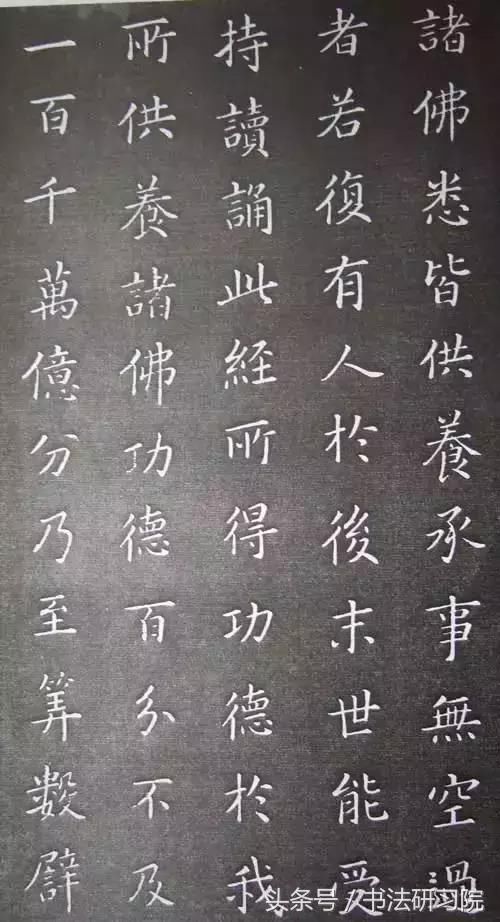 諸佛悉皆供養承事無空過
者若復有人於後末世能受
持讀誦此經所得功德於我
所供養諸佛功德百分不及
一百千萬億分乃至筭數譬
头条号/书法研习院